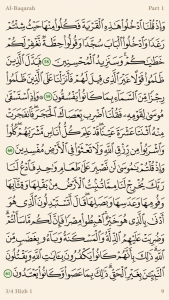 Al-Baqarah Part 1
وَإِذْ قُلْنَا ٱدْخُلُوا۟ هَٰذِهِ ٱلْقَرْيَةَ فَكُلُوا۟ مِنْهَا حَيْثُ شِئْتُمْ
رَغَدًا وَٱدْخُلُوا۟ ٱلْبَابَ سُجَّدًا وَقُولُوا۟ حِطَّةٌ نَّغْفِرْ لَكُمْ
خَطَٰيَٰكُمْ وَسَنَزِيدُ ٱلْمُحْسِنِينَ ٥٨ فَبَدَّلَ ٱلَّذِينَ
ظَلَمُوا۟ قَوْلًا غَيْرَ ٱلَّذِى قِيلَ لَهُمْ فَأَنزَلْنَا عَلَى ٱلَّذِينَ ظَلَمُوا۟
رِجْزًا مِّنَ ٱلسَّمَآءِ بِمَا كَانُوا۟ يَفْسُقُونَ ٥٩ ۞ وَإِذِ ٱسْتَسْقَىٰ
مُوسَىٰ لِقَوْمِهِۦ فَقُلْنَا ٱضْرِب بِّعَصَاكَ ٱلْحَجَرَ فَٱنفَجَرَتْ
مِنْهُ ٱثْنَتَا عَشْرَةَ عَيْنًا قَدْ عَلِمَ كُلُّ أُنَاسٍ مَّشْرَبَهُمْ كُلُوا۟
وَٱشْرَبُوا۟ مِن رِّزْقِ ٱللَّهِ وَلَا تَعْثَوْا۟ فِى ٱلْأَرْضِ مُفْسِدِينَ ٦٠
وَإِذْ قُلْتُمْ يَٰمُوسَىٰ لَن نَّصْبِرَ عَلَىٰ طَعَامٍ وَٰحِدٍ فَٱدْعُ لَنَا
رَبَّكَ يُخْرِجْ لَنَا مِمَّا تُنۢبِتُ ٱلْأَرْضُ مِنۢ بَقْلِهَا وَقِثَّآئِهَا
وَفُومِهَا وَعَدَسِهَا وَبَصَلِهَا قَالَ أَتَسْتَبْدِلُونَ ٱلَّذِى هُوَ
أَدْنَىٰ بِٱلَّذِى هُوَ خَيْرٌ ٱهْبِطُوا۟ مِصْرًا فَإِنَّ لَكُم مَّا سَأَلْتُمْ
وَضُرِبَتْ عَلَيْهِمُ ٱلذِّلَّةُ وَٱلْمَسْكَنَةُ وَبَآءُو بِغَضَبٍ مِّنَ
ٱللَّهِ ذَٰلِكَ بِأَنَّهُمْ كَانُوا۟ يَكْفُرُونَ بِـَٔايَٰتِ ٱللَّهِ وَيَقْتُلُونَ
ٱلنَّبِيِّـۧنَ بِغَيْرِ ٱلْحَقِّ ذَٰلِكَ بِمَا عَصَوا۟ وَّكَانُوا۟ يَعْتَدُونَ ٦١
3/4 Hizb 1 9